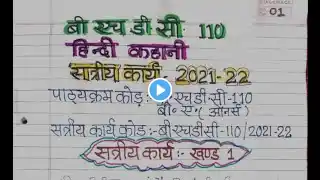 01
बी एच डी सी 110
हिन्दी कहानी
सत्रीय कार्य :- 2021-22
पाठ्यक्रम कोड़ :- बी.एच.डी.सी-110
बी॰ ए॰ (ऑनर्स)
सत्रीय कार्य कोड :- बी.एच.डी.सी-110/2021-22
सत्रीय कार्य :- खण्ड 1